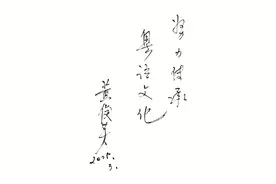 努力传承
粤语文化
黄俊英
2015.
3.